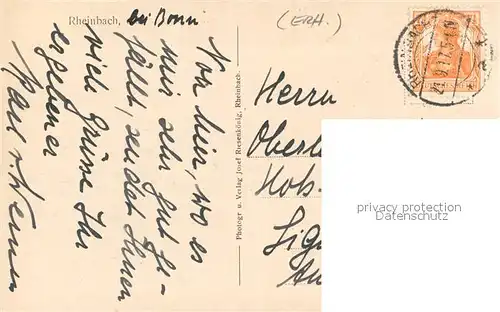 Rheinbach, bei Bonn
(ERH.)
Von hier, wo es
mir sehr gut ge-
fällt, sendet Ihnen
viele Grüsse Ihr
ergebener
Photogr. u. Verlag Josef Riesenkönig, Rheinbach.
Herrn
Oberl
Hob.
Sig
privacy protection
Datenschutz